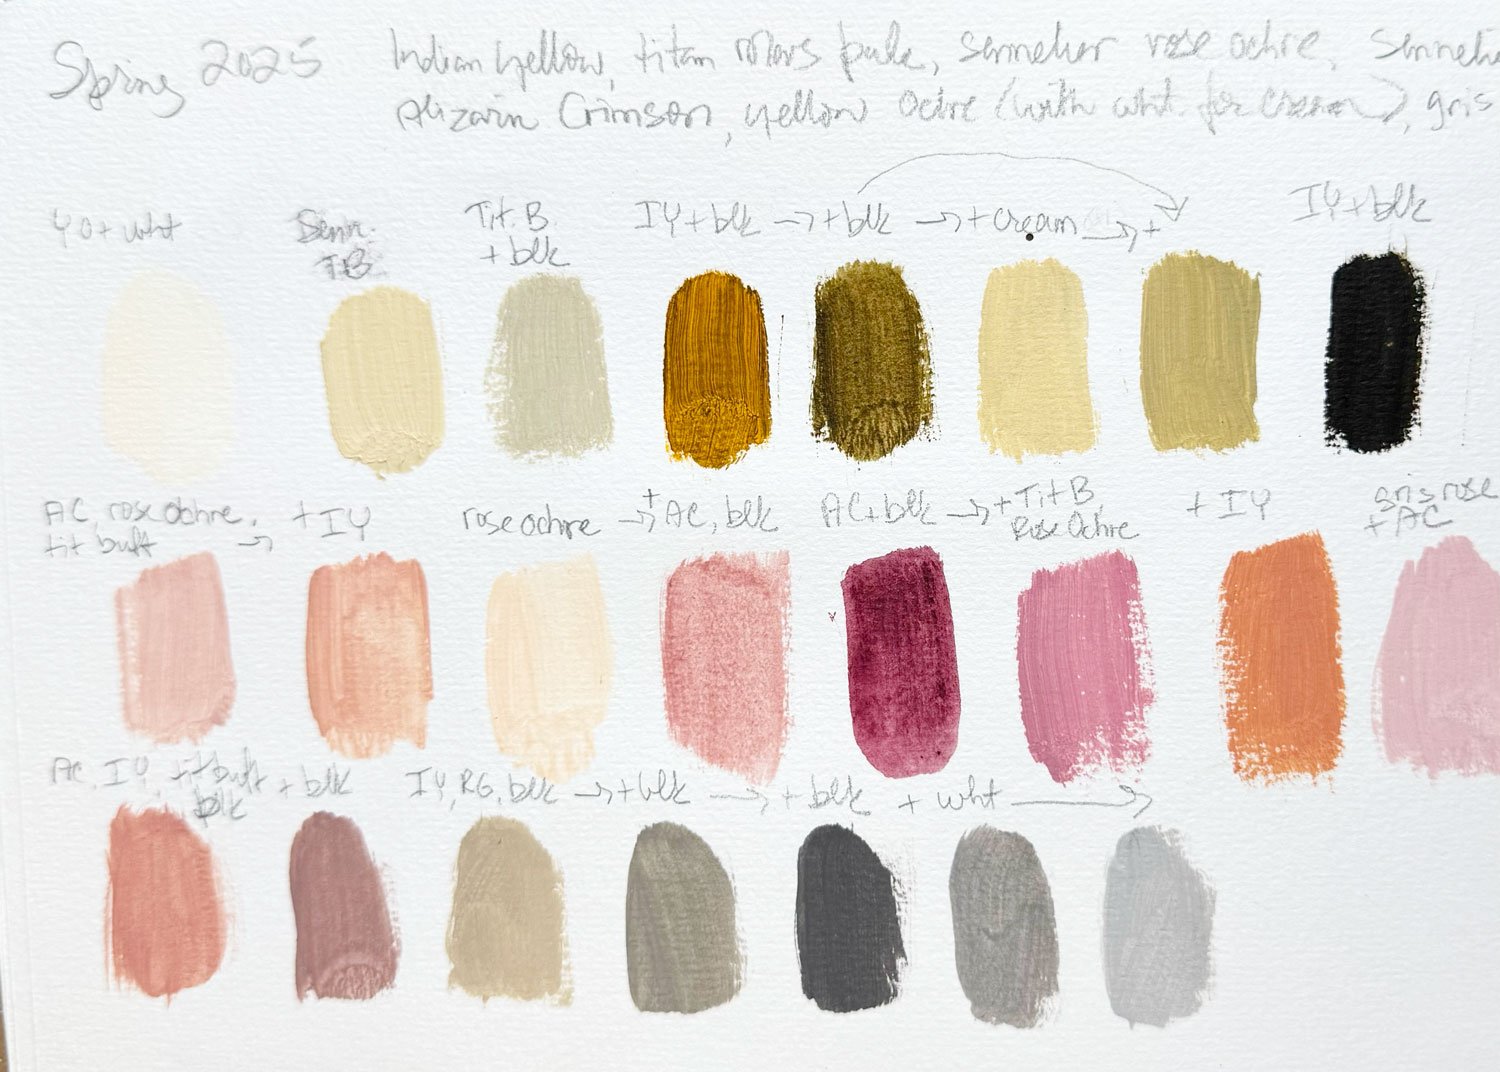 Spring 2025
Indian Yellow, titan Mars pale, sennelier rose ochre, Senneli
Alizarin Crimson, yellow Ochre (with wht for cream), gris
YO + wht
Senn. T.B
Tit. B. + blk
IY + blk → + blk → + cream → +
IY + blk
AC, rose Ochre, tit buff →
+ IY
rose ochre → + AC, blk
AC + blk → + Tit B, Rose Ochre
+ IY
gris rose + AC
AC, IY, tit buff blk
+ blk
IY, RG, blk → + blk → + blk + wht →